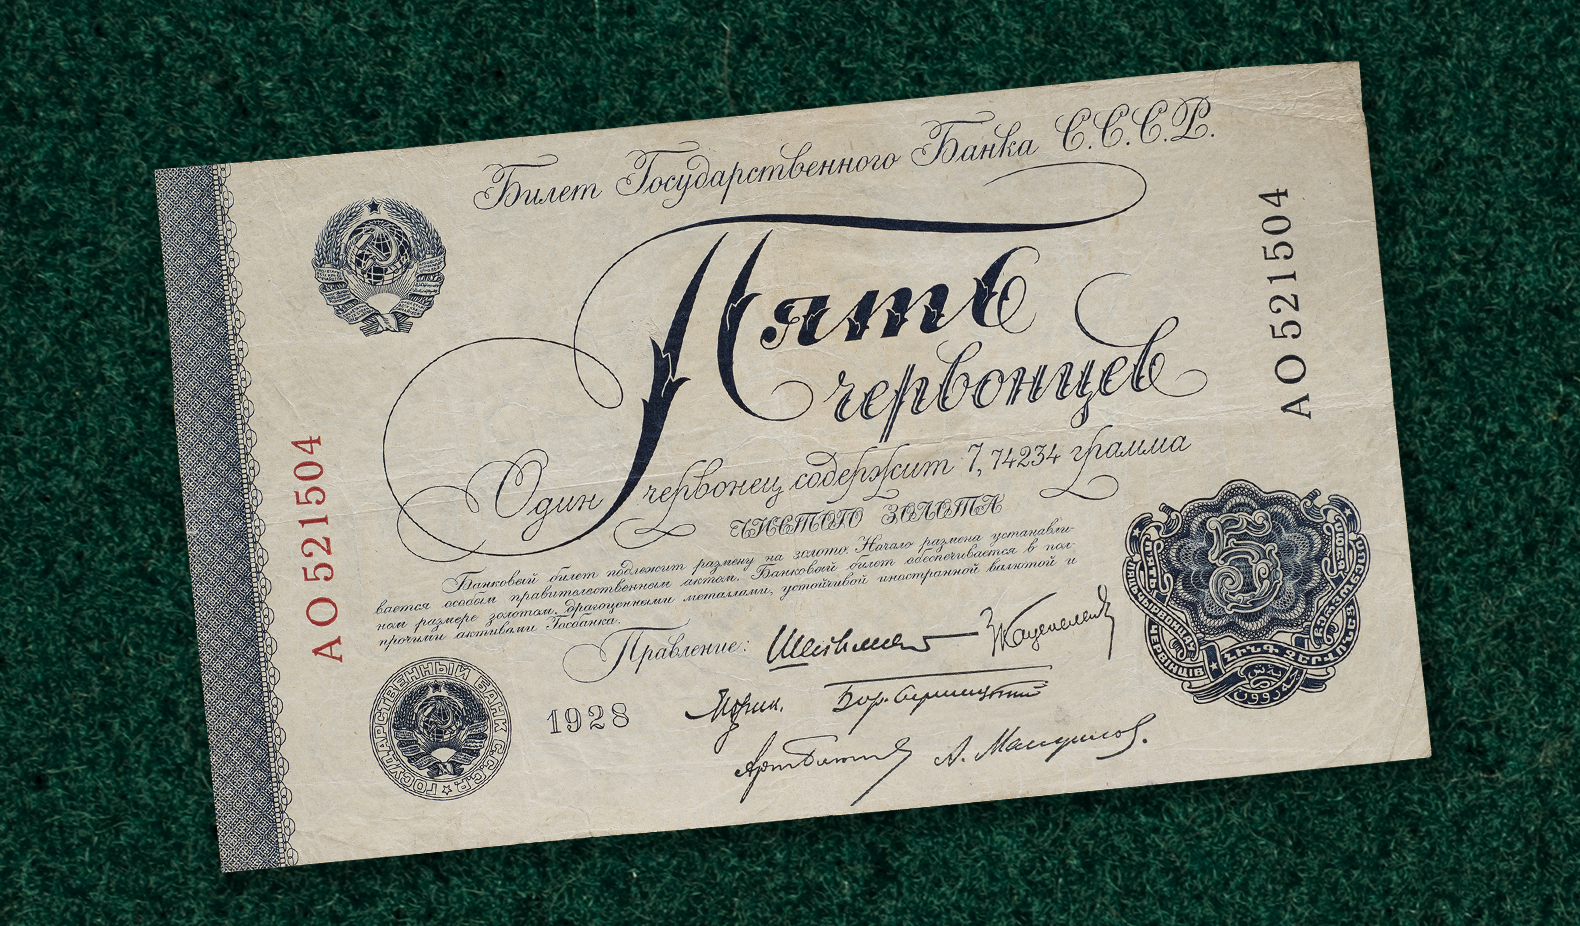 Билет Государственного Банка С.С.С.Р.
Пять
червонцев
Один червонец содержит 7,74234 грамма
чистого золота
Банковый билет подлежит размену на золото. Начало размена устанавли-
вается особым правительственным актом. Банковый билет обеспечивается в пол-
ном размере золотом, драгоценными металлами, устойчивой иностранной валютой и
прочими активами Госбанка.
Правление:
1928
АО 521504
АО 521504
ГОСУДАРСТВЕННЫЙ БАНК С.С.С.Р.
5
ՀԻՆԳ ՉԵՐՎՈՆԵՑ